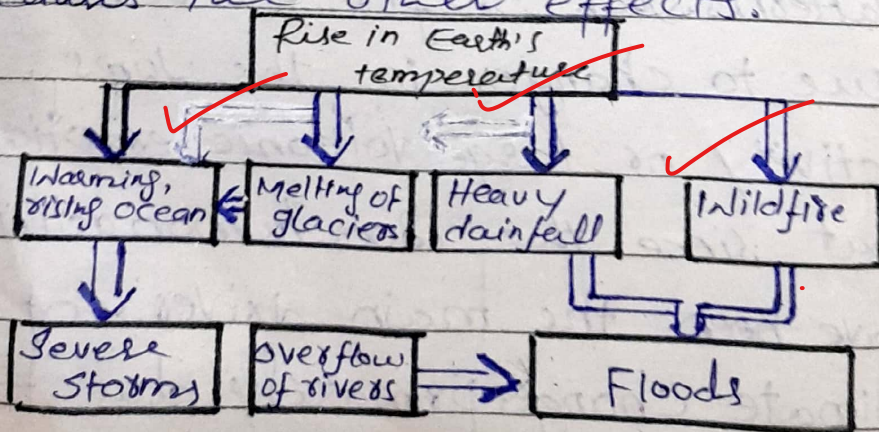 other effects.
Rise in Earth's
temperature
Warming,
rising ocean
Melting of
glaciers
Heavy
dainfall
Wildfire
Severe
Storms
overflow
of rivers
Floods